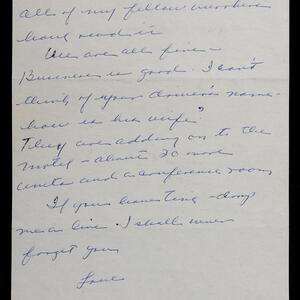 all of my fellow workers
have read it
We are all fine -
Business is good. I can't
think of your
how is his wife?
They are adding on to the
motel - about 20 more
units and a conference room
If your
me a line. I shall never
forget you
Love